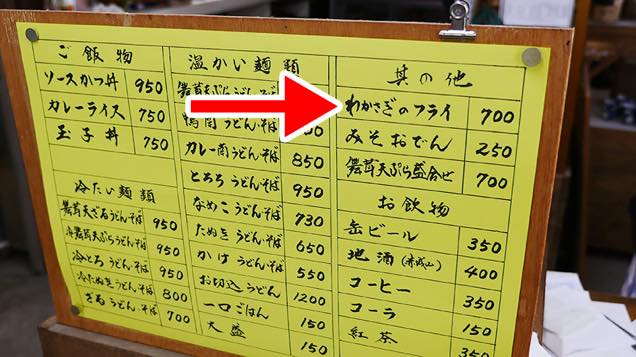 ご飯物
ソースかつ丼 950
カレーライス 750
玉子丼 750
冷たい麺類
舞茸天ざるうどん・そば 950
冷舞茸天ぷらうどん・そば 950
冷とろろうどん・そば 950
冷たぬきうどん・そば 800
ざるうどん・そば 700
温かい麺類
舞茸天ぷらうどん・そば
鴨南うどん・そば
カレー南うどん・そば 850
とろろうどん・そば 950
なめこうどん・そば 730
たぬきうどん・そば 650
かけうどん・そば 550
お切込うどん 1200
一口ごはん 150
大盛 150
其の他
わかさぎのフライ 700
みそおでん 250
舞茸天ぷら盛合せ 700
お飲物
缶ビール 350
地酒(赤城山) 400
コーヒー 350
コーラ 150
紅茶